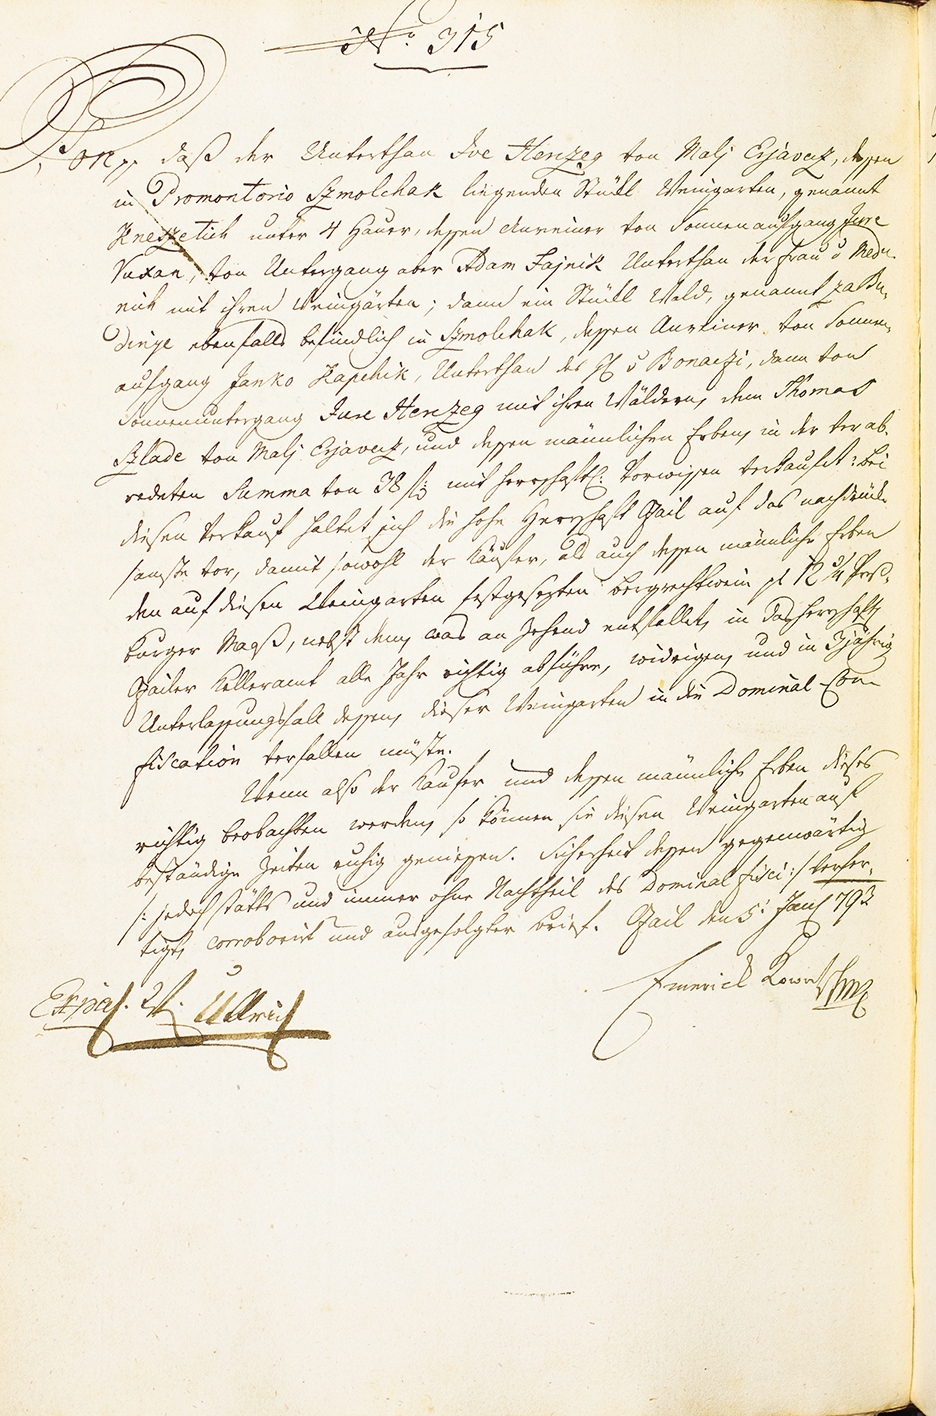 No. 315
daß der Unterthan Ive Herczeg von Mali Erjavecz, dessen
in Promontorio Szmolchak liegenden Stükl Weingarten, genannt
Kneszetich unter 4 Hauer, dessen Anreiner von Sonnenaufgang Jure
Vuxan, von Untergang aber Adam Fajnik Unterthan der Frau v Med-
mit ihren Weingärten; dann ein Stükl Wald, genannt
ebenfalls befindlich in Szmolchak, dessen Anreiner von Sonnen-
aufgang Janko Kapchik, Unterthan des H v Bonaczi, dann von
Sonnenuntergang Jure Herczeg mit ihren Wäldern, dem Thomas
Szlade von Malj Erjavecz, und dessen männlichen Erben, in der verab-
redeten Summa von 38 f mit herrschaftl: Vorwissen verkauft: bei
diesen Verkauf haltet sich die hohe Herrschaft auf das nachdrük-
samste vor, damit sowohl der Käufer, als auch dessen männliche Erben
den auf diesen Weingarten festgesezten bergrechtwein pr 12 Pres-
burger Maaß, nebst dem, was an Zehend entfallet, in das herrschaftl
Kelleramt alle Jahr richtig abführe, widrigen, und in 3jährig
Unterlassungsfall dessen, dieser Weingarten in die Dominal Con-
fiscation verfallen müste.
Wenn also der Kaufer und dessen männliche Erben dieses
richtig beobachten werden, so können sie diesen Weingarten auf
beständige Zeiten ruhig geniessen. Sicherheit dessen gegenwärtig
/: jedoch stätts und immer ohne Nachtheil des Dominal fisci :/ verfer-
tigt, corroborirt und ausgefolgter brief. den 5t Janr 793
Emerick
Ullrich